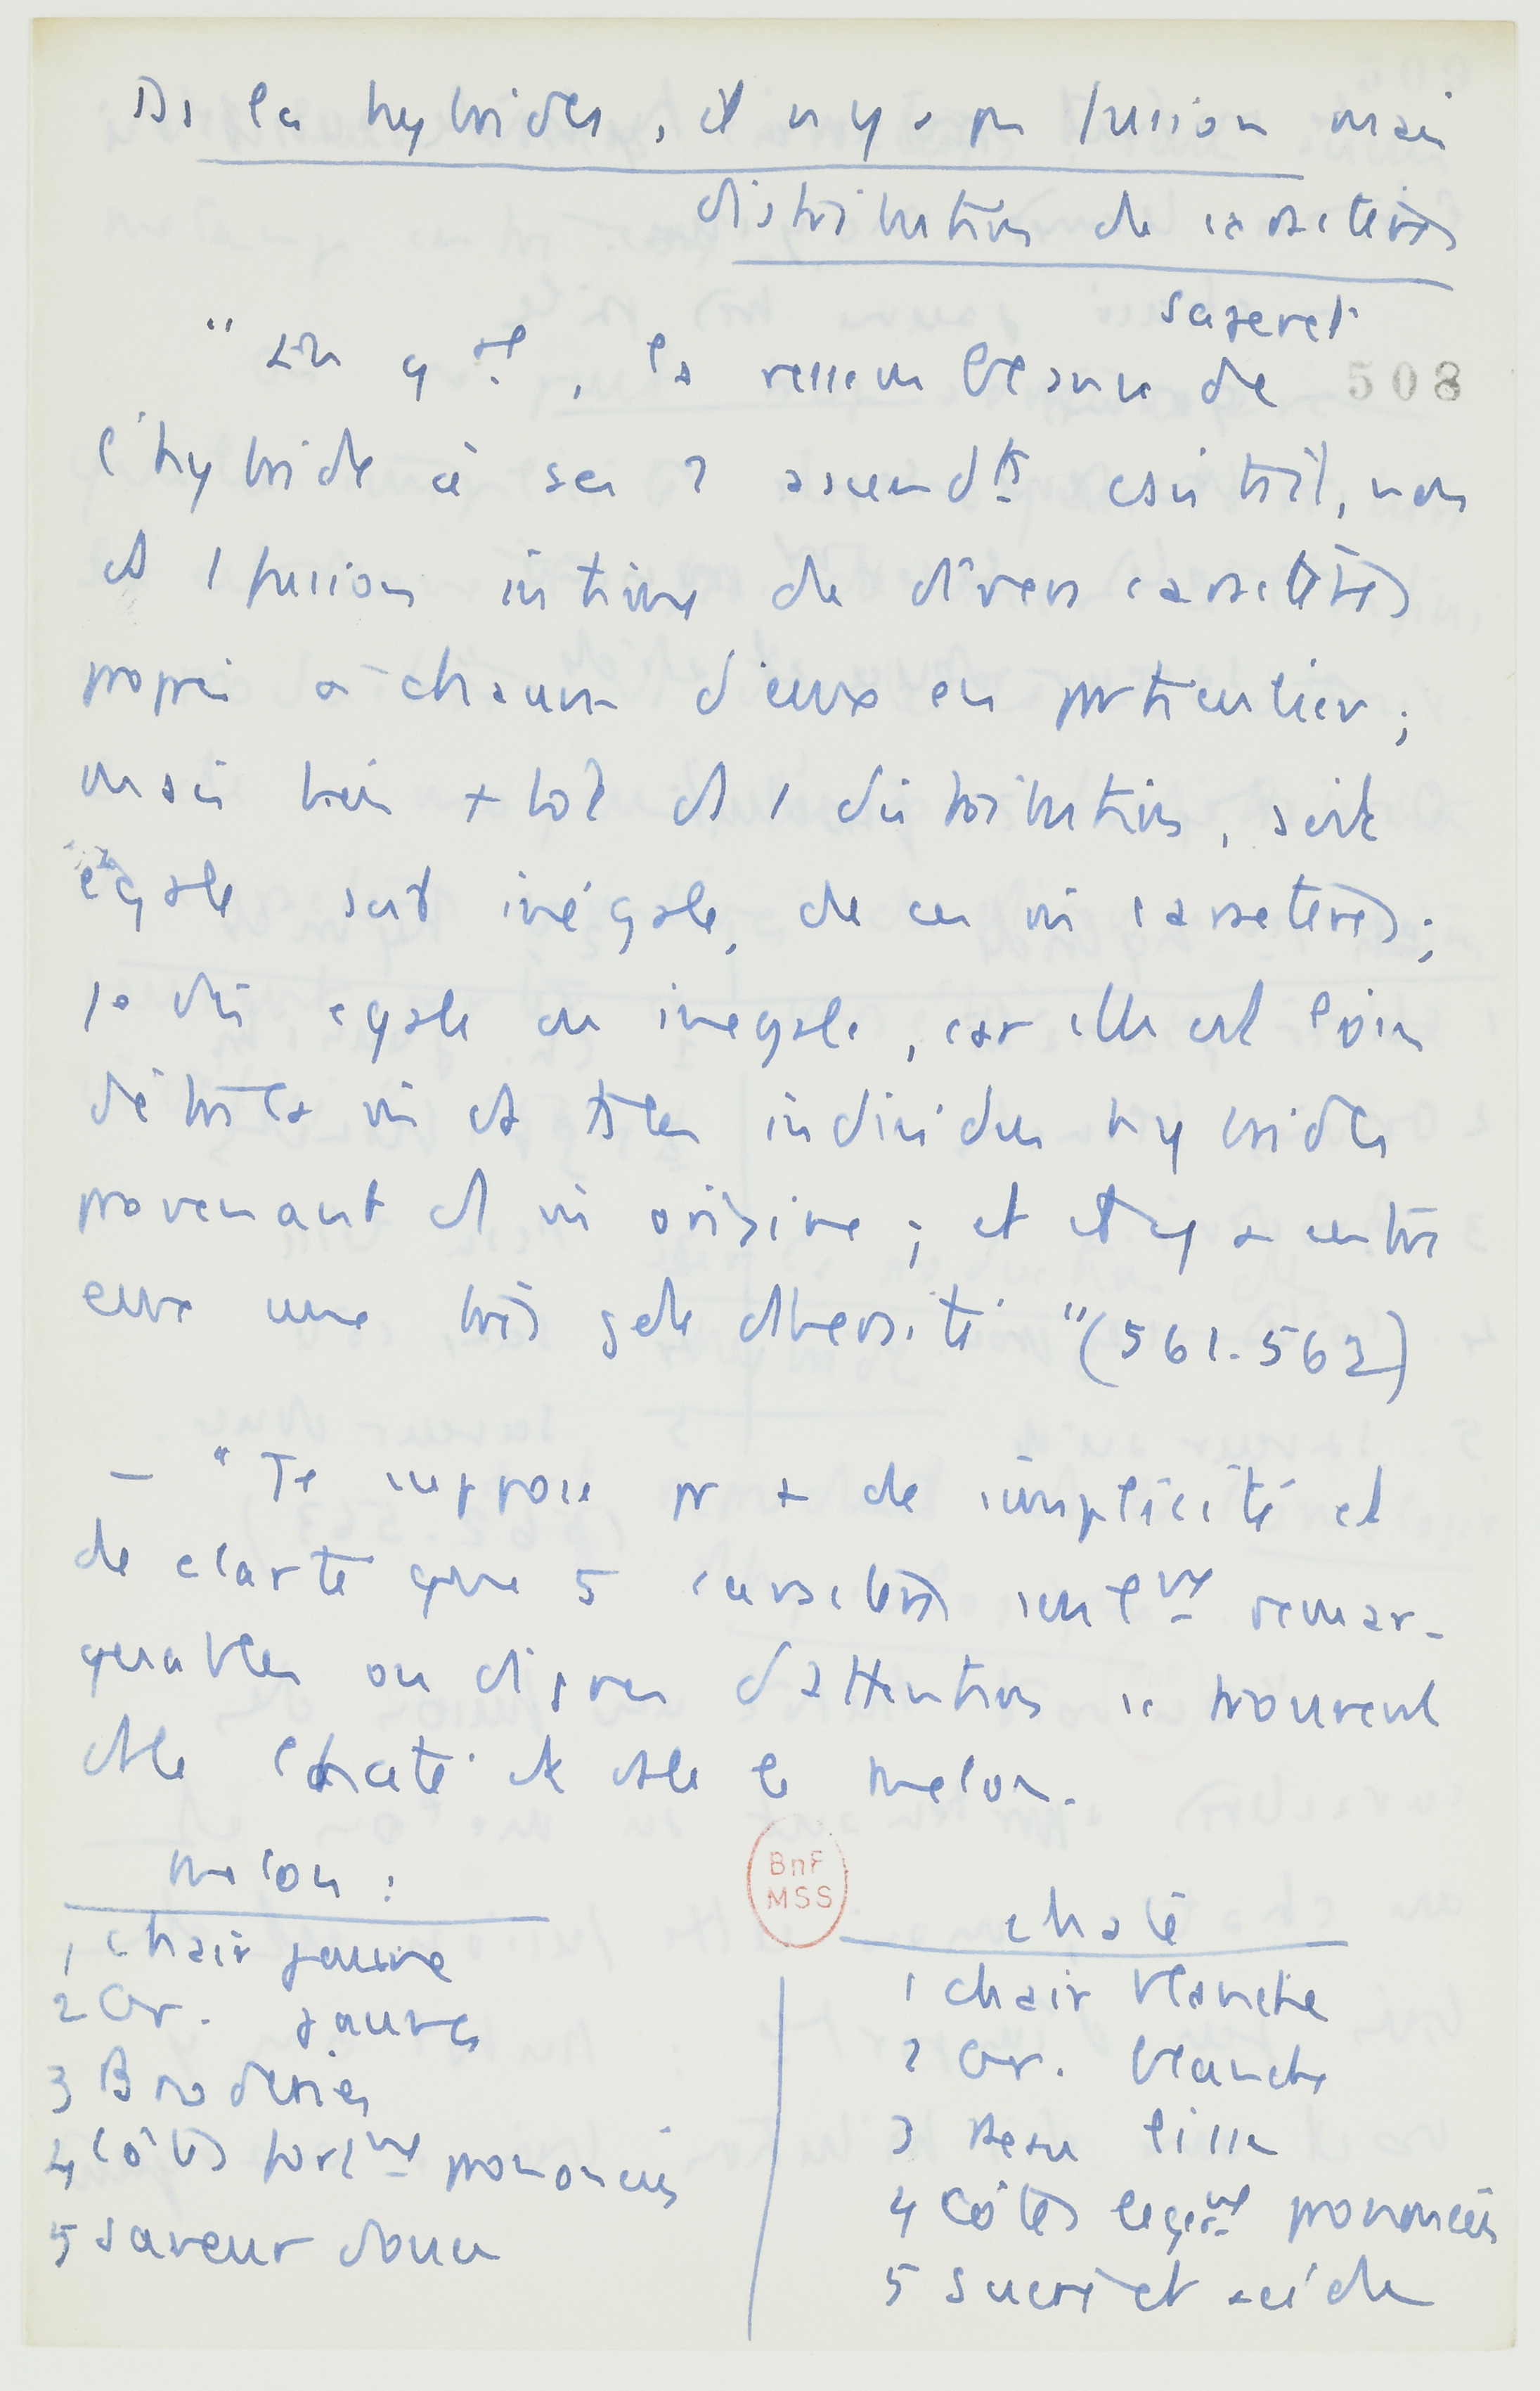 Ds les hybrides, il n'y a pas fusion mais
distribution de caractères
Sageret
508
"En gal, la ressemblance de
l'hybride à ses 2 ascendts consistait, non
ds 1 fusion intime de divers caractères
propres à chacun d'eux en particulier ;
mais bien + tôt ds 1 distribution, soit
égale soit inégale, de ces m̂ caractères ;
je dis égale ou inégale, car elle est loin
d'être la m̂ ds ts les individus hybrides
provenant d m̂ origine ; et il y a entre
eux une très gde diversité" (561-562)
– "Je suppose pr + de simplicité et
de clarté que 5 caractères seulmt remar-
quables ou dignes d'attention se trouvent
ds le chaté et ds le melon.
Melon :
1 chair jaune
2 Gr. jaunes
3 Broderies
4 Côtes fortmt prononcées
5 Saveur douce
Chaté
1 chair blanche
2 Gr. blanche
3 Peau lisse
4 Côtes légèrmt prononcées
5 Sucré et acide
BnF
MSS